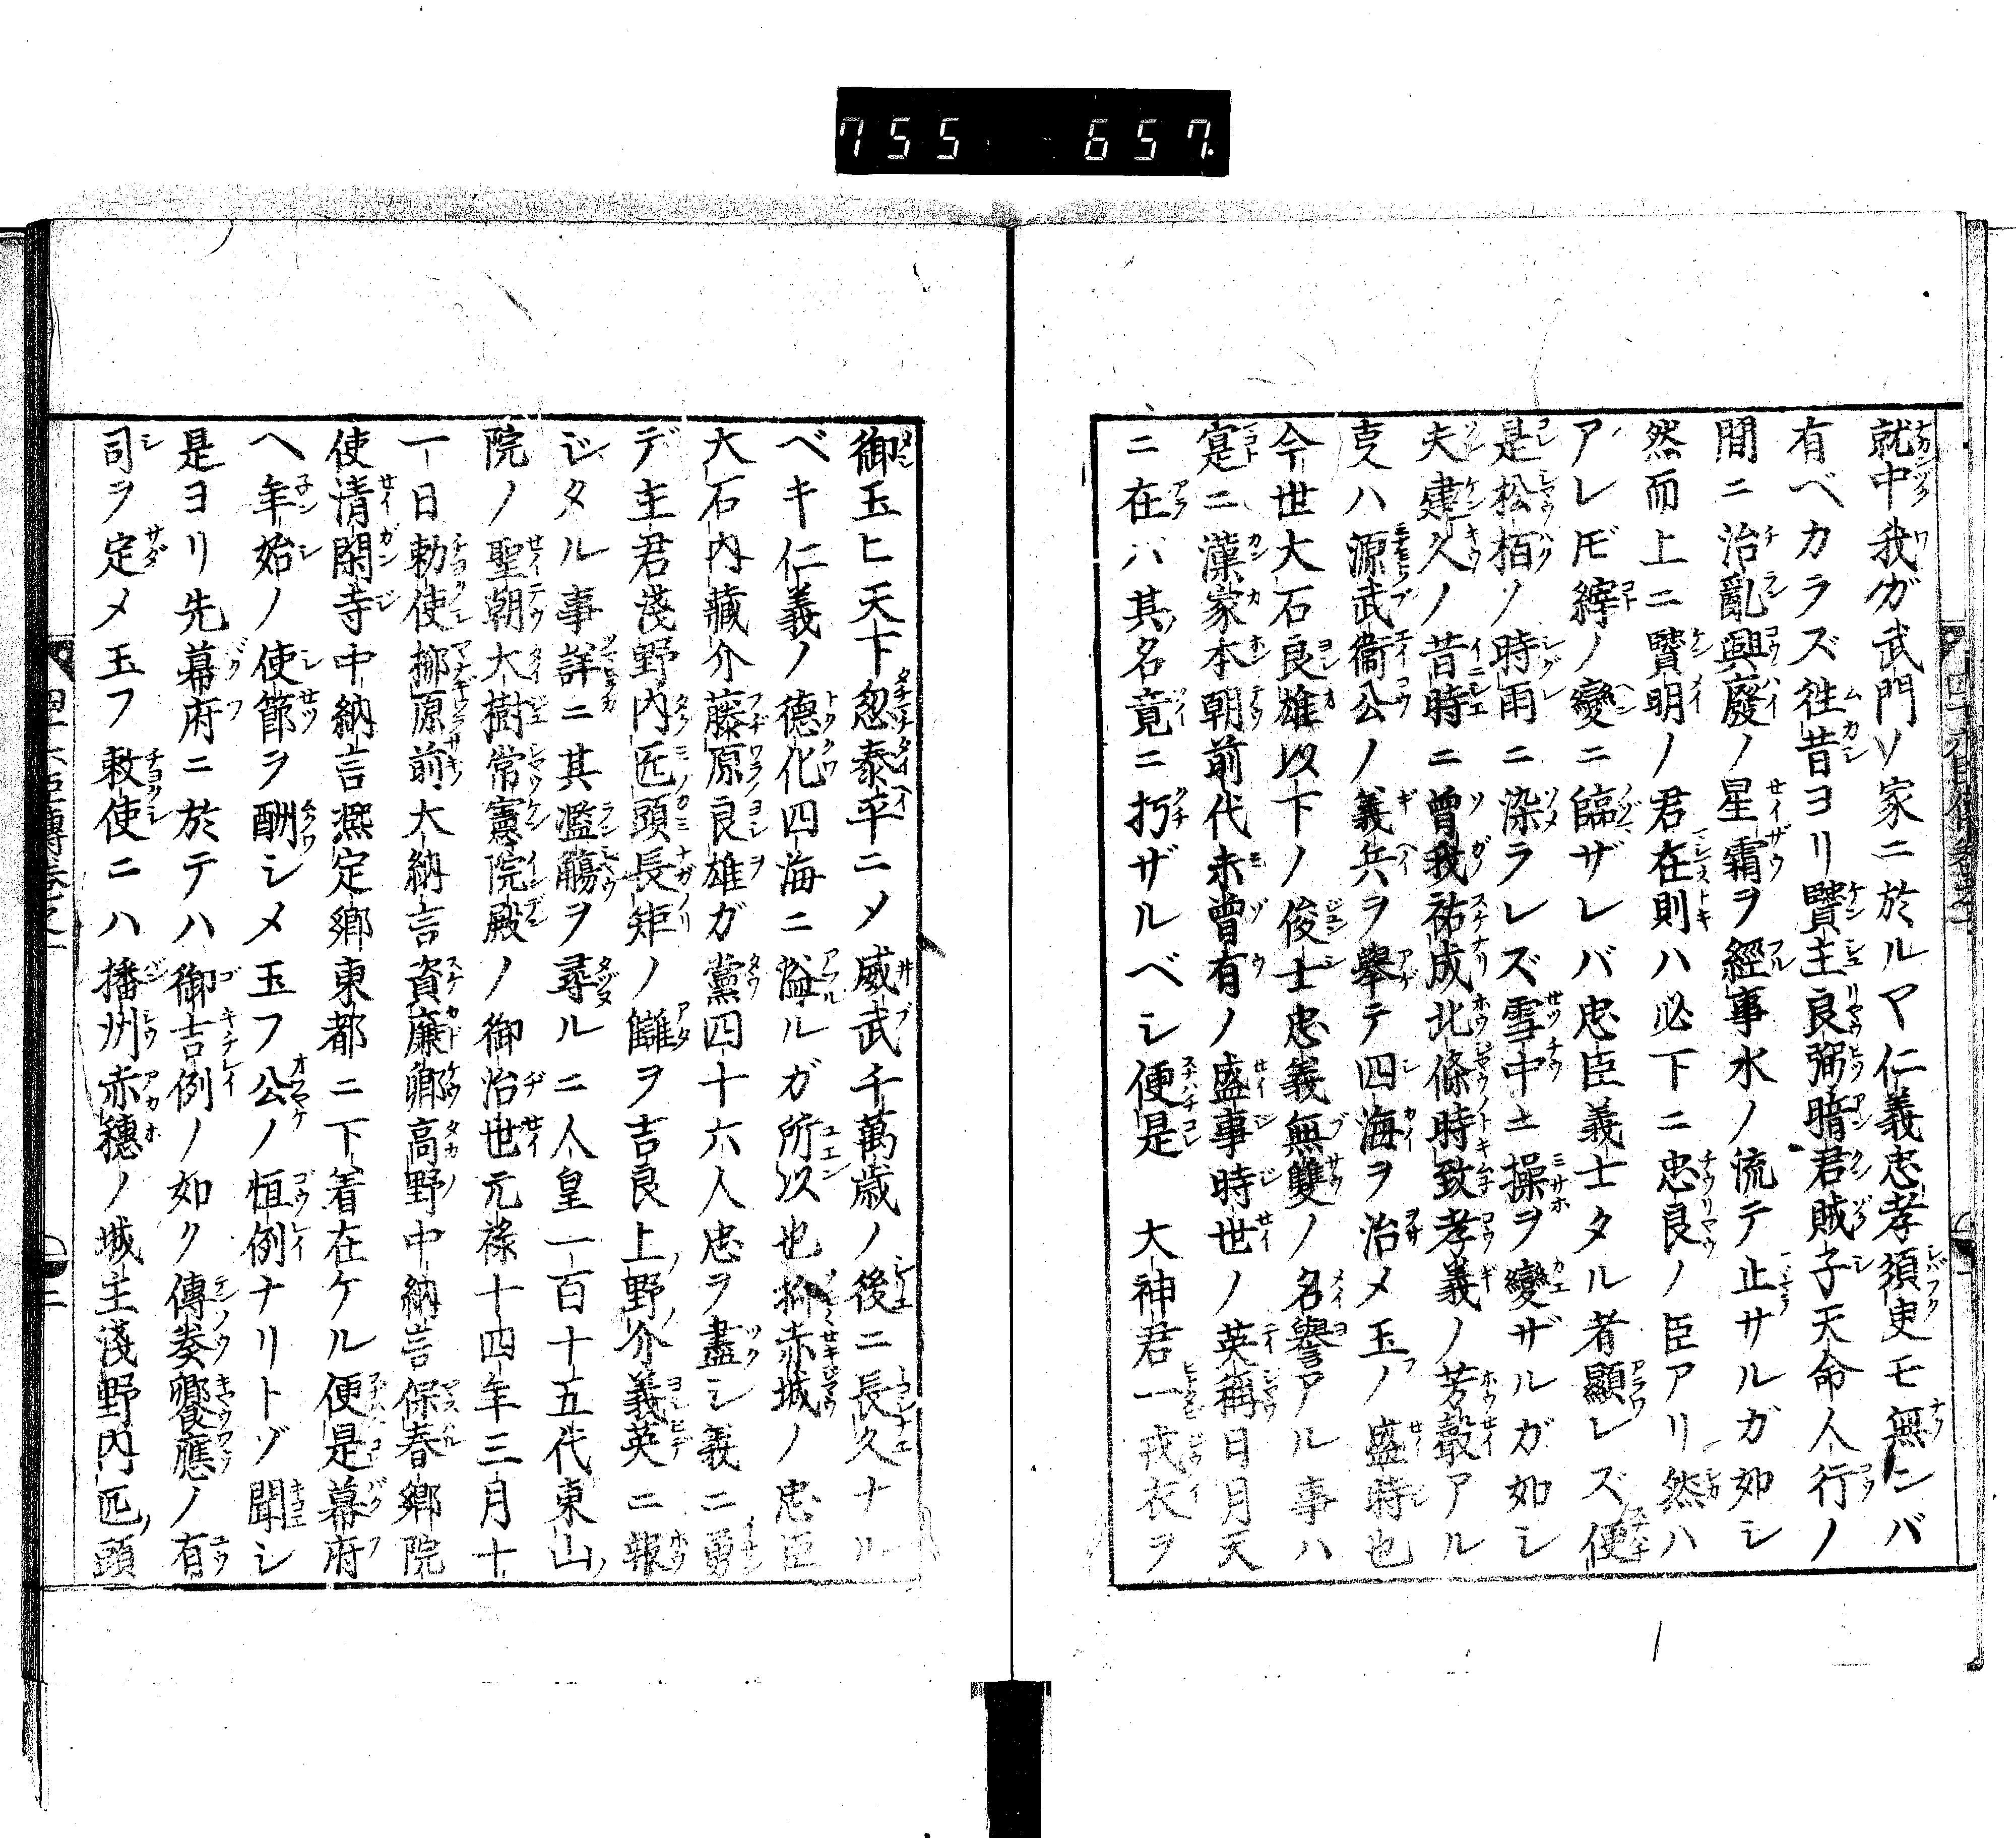 755 657
就中我ガ武門ノ家ニ於ルヤ仁義忠孝須臾モ無ンバ
有ベカラズ徃昔ヨリ賢主良弼暗君賊子天命人行ノ
間ニ治亂興廢ノ星霜ヲ經事水ノ流テ止サルガ如シ
然而上ニ賢明ノ君在則ハ必下ニ忠良ノ臣アリ然ハ
アレ𪜈縡ノ變ニ臨ザレバ忠臣義士タル者顯レズ便
是松栢ノ時雨ニ染ラレズ雪中ニ操ヲ變ザルガ如シ
夫建久ノ昔時ニ曽我祐成北條時致孝義ノ芳聲アル
吏ハ源武衞公ノ義兵ヲ擧テ四海ヲ治メ玉ノ盛時也
今世大石良雄以下ノ俊士忠義無雙ノ名譽アル事ハ
寔ニ漢家本朝前代未曽有ノ盛事時世ノ英稱日月天
ニ在バ其名竟ニ朽ザルベシ便是 大神君一戎衣ヲ
御玉ヒ天下忽泰平ニメ威武千萬歳ノ後ニ長久ナル
ベキ仁義ノ德化四海ニ溢ルガ所以也抑赤城ノ忠臣
大石内藏介藤原良雄ガ黨四十六人忠ヲ盡シ義ニ勇
デ主君淺野内匠頭長矩ノ讎ヲ吉良上野介義英ニ報
ジタル事詳ニ其濫觴ヲ尋ルニ人皇一百十五代東山
院ノ聖朝大樹常憲院殿ノ御治世元禄十四年三月十
一日勅使柳原前大納言資廉卿高野中納言保春郷院
使淸閑寺中納言熈定郷東都ニ下着在ケル便是幕府
ヘ年始ノ使節ヲ酬シメ玉フ公ノ恒例ナリトゾ聞シ
是ヨリ先幕府ニ於テハ御吉例ノ如ク傳奏饗應ノ有
司ヲ定メ玉フ敕使ニハ播州赤穗ノ城主淺野内匠頭